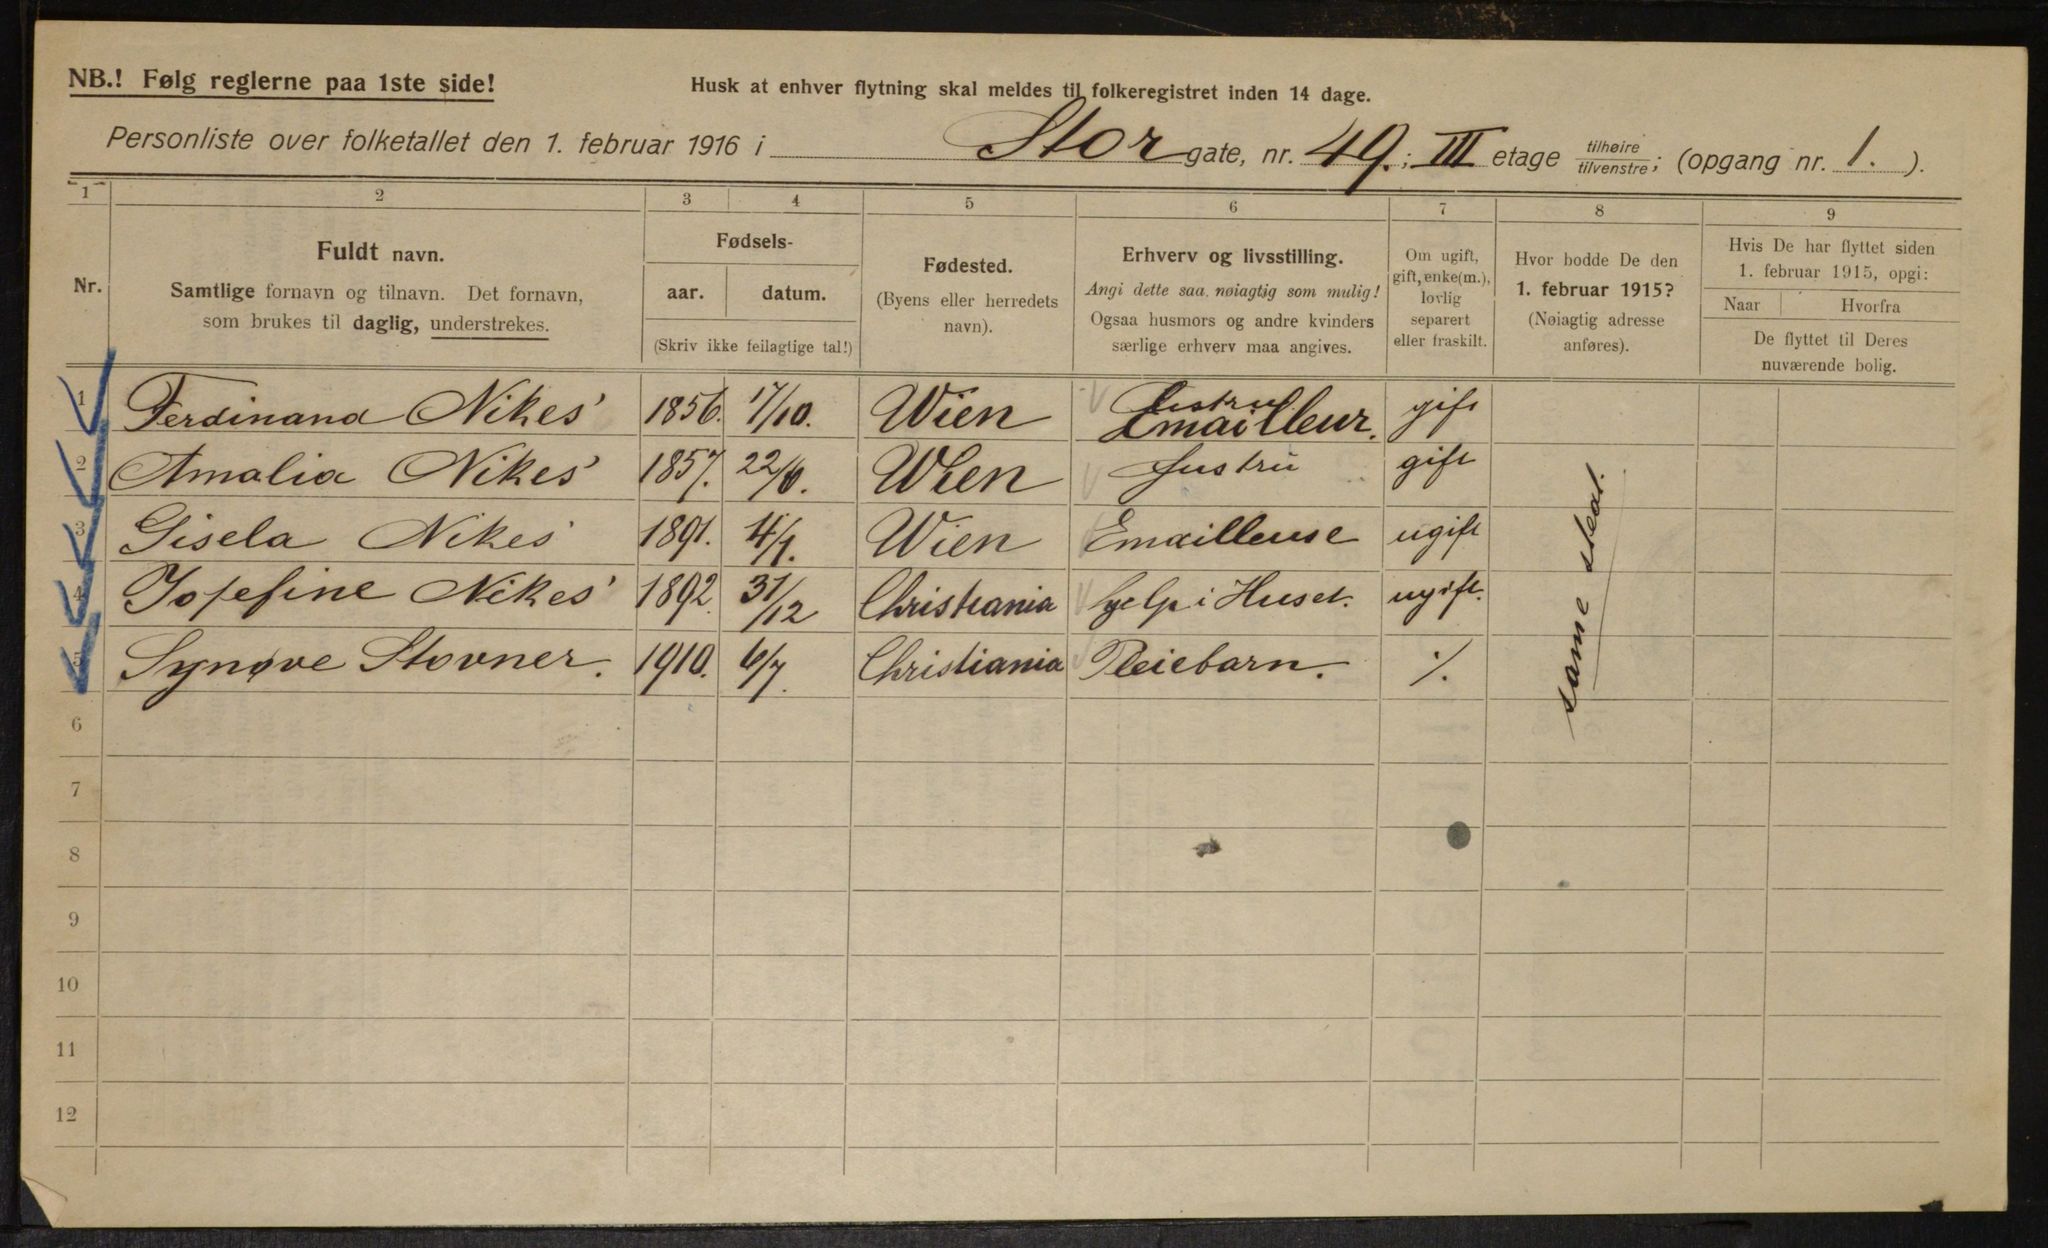 NB.! Følg reglerne paa 1ste side!
Husk at enhver flytning skal meldes til folkeregistret inden 14 dage.
Personliste over folketallet den 1. februar 1916 i Stor gate, nr. 49.; III etage tilhøire/tilvenstre; (opgang nr. 1. ).
1 2 3 4 5 6 7 8 9
Nr.
Fuldt navn.
Samtlige fornavn og tilnavn. Det fornavn,
som brukes til daglig, understrekes.
Fødsels-
aar. datum.
(Skriv ikke feilagtige tal!)
Fødested.
(Byens eller herredets
navn).
Erhverv og livsstilling.
Angi dette saa nøiagtig som mulig!
Ogsaa husmors og andre kvinders
særlige erhverv maa angives.
Om ugift,
gift, enke(m.),
lovlig
separert
eller fraskilt.
Hvor bodde De den
1. februar 1915?
(Nøiagtig adresse
anføres).
Hvis De har flyttet siden
1. februar 1915, opgi:
Naar Hvorfra
De flyttet til Deres
nuværende bolig.
1 Ferdinand Nikes' 1856. 17/10. Wien Emailleur. gift
2 Amalia Nikes' 1857. 22/6. Wien gift
3 Gisela Nikes' 1891. 4/9. Wien Emailleuse ugift
4 Josefine Nikes' 1892. 31/12 Christiania hjelp i Huset. ugift.
5 Synøve Stovner. 1910. 6/7. Christiania Pleiebarn. ./.
same sted.
6
7
8
9
10
11
12